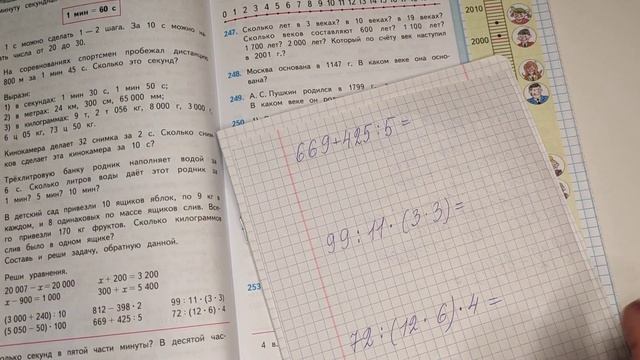 минуту секунд
1 мин = 60 с
1 с можно сделать 1—2 шага. За 10 с можно на-
числа от 20 до 30.
На соревнованиях спортсмен пробежал дистанцию
800 м за 1 мин 45 с. Сколько это секунд?
Вырази:
1) в секундах: 1 мин 30 с, 1 мин 50 с;
2) в метрах: 24 км, 300 см, 65 000 мм;
3) в килограммах: 9 т, 2 т 056 кг, 8 000 г, 3 000 г,
6 ц 05 кг, 73 ц 50 кг.
Кинокамера делает 32 снимка за 2 с. Сколько сним-
ков сделает эта кинокамера за 10 с?
Трёхлитровую банку родник наполняет водой за
6 с. Сколько литров воды даёт этот родник за
1 мин? 5 мин? 10 мин?
В детский сад привезли 10 ящиков яблок, по 9 кг в
каждом, и 8 одинаковых по массе ящиков слив. Все-
го привезли 170 кг фруктов. Сколько килограммов
слив было в одном ящике?
Составь и реши задачу, обратную данной.
Реши уравнения.
20 007 − x = 20 000 x + 200 = 3 200
x − 900 = 1 000 300 + x = 5 400
(3 000 + 240) : 10 812 − 398 · 2 99 : 11 · (3 · 3)
(5 050 − 50) · 100 669 + 425 : 5 72 : (12 · 6) · 4
секунд в пятой части минуты? В десятой час-
0 1 2 3 4 5 6 7 8 9 10 11 12
247. Сколько лет в 3 веках? в 10 веках? в 19 веках?
Сколько веков составляют 600 лет? 1 100 лет?
1 700 лет? 2 000 лет? Который по счёту век наступил
в 2001 г.?
248. Москва основана в 1147 г. В каком веке она осно-
вана?
249. А. С. Пушкин родился в 1799 г.
В каком веке он
250
253
4 в.
2010
2000
669+425:5=
99:11·(3·3)=
72:(12·6)·4=